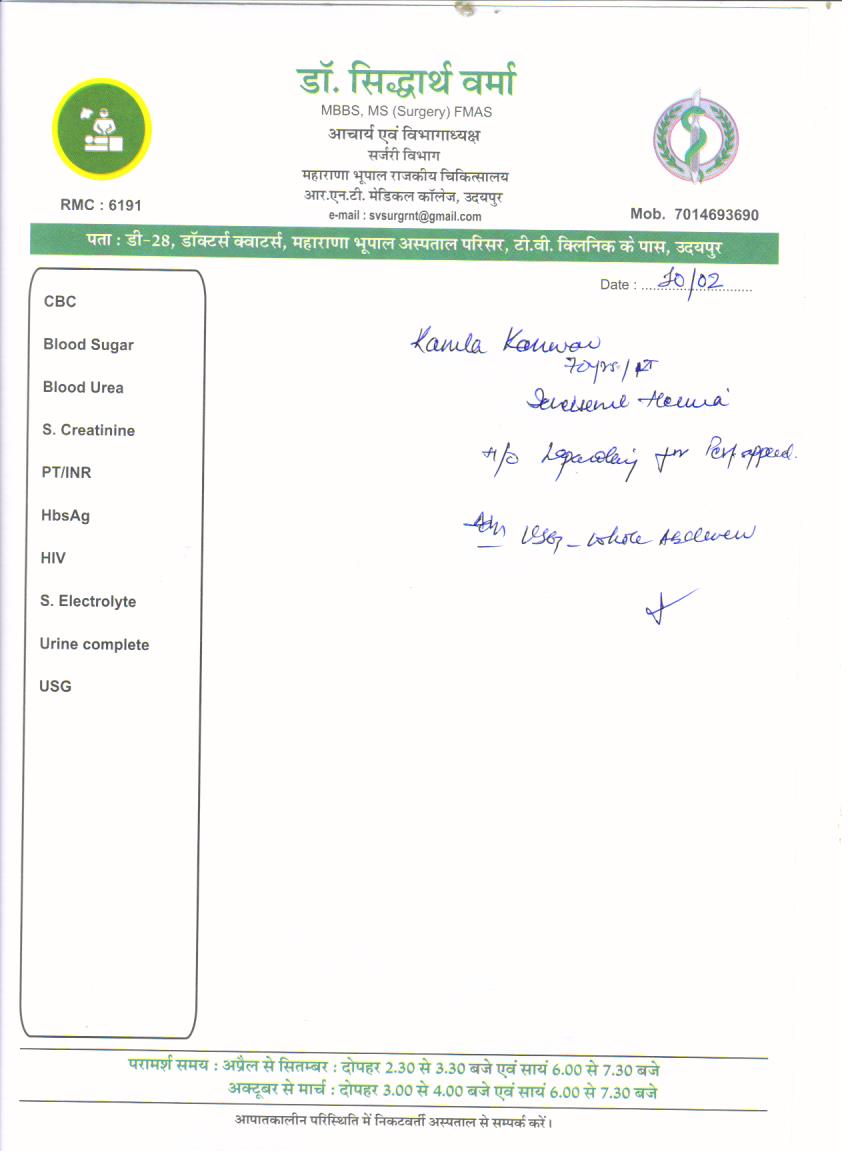 डॉ. सिद्धार्थ वर्मा
MBBS, MS (Surgery) FMAS
आचार्य एवं विभागाध्यक्ष
सर्जरी विभाग
महाराणा भूपाल राजकीय चिकित्सालय
आर.एन.टी. मेडिकल कॉलेज, उदयपुर
e-mail : svsurgrnt@gmail.com
RMC : 6191
Mob. 7014693690
पता : डी-28, डॉक्टर्स क्वाटर्स, महाराणा भूपाल अस्पताल परिसर, टी.वी. क्लिनिक के पास, उदयपुर
Date : 10/02
CBC
Blood Sugar
Blood Urea
S. Creatinine
PT/INR
HbsAg
HIV
S. Electrolyte
Urine complete
USG
Kamla Kanwar
70yrs/
H/O for Perf.
USG - Whole Abdomen
परामर्श समय : अप्रैल से सितम्बर : दोपहर 2.30 से 3.30 बजे एवं सायं 6.00 से 7.30 बजे
अक्टूबर से मार्च : दोपहर 3.00 से 4.00 बजे एवं सायं 6.00 से 7.30 बजे
आपातकालीन परिस्थिति में निकटवर्ती अस्पताल से सम्पर्क करें।